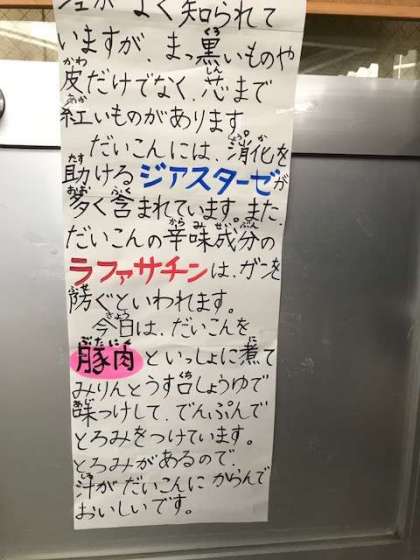 よく知られて
いますが、まっ黒いものや
皮だけでなく、芯まで
紅いものがあります
だいこんには、消化を
助けるジアスターゼが
多く含まれています。また、
だいこんの辛味成分の
ラファサチンは、ガンを
防ぐといわれます。
今日は、だいこんを
豚肉といっしょに煮て
みりんとうす口しょうゆで
味つけして、でんぷんで
とろみをつけています。
とろみがあるので、
汁がだいこんにからんで
おいしいです。